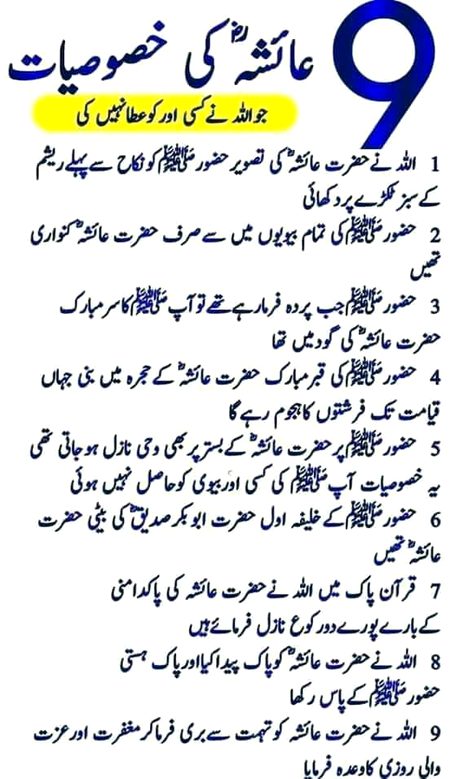 9
عائشہؓ کی خصوصیات
جو اللہ نے کسی اور کو عطا نہیں کی
1 اللہ نے حضرت عائشہؓ کی تصویر حضورﷺ کو نکاح سے پہلے ریشم
کے سبز ٹکڑے پر دکھائی
2 حضورﷺ کی تمام بیویوں میں سے صرف حضرت عائشہؓ کنواری
تھیں
3 حضورﷺ جب پردہ فرما رہے تھے تو آپﷺ کا سر مبارک
حضرت عائشہؓ کی گود میں تھا
4 حضورﷺ کی قبر مبارک حضرت عائشہؓ کے حجرہ میں بنی جہاں
قیامت تک فرشتوں کا ہجوم رہے گا
5 حضورﷺ پر حضرت عائشہؓ کے بستر پر بھی وحی نازل ہو جاتی تھی
یہ خصوصیات آپﷺ کی کسی اور بیوی کو حاصل نہیں ہوئی
6 حضورﷺ کے خلیفہ اول حضرت ابوبکر صدیقؓ کی بیٹی حضرت
عائشہؓ تھیں
7 قرآن پاک میں اللہ نے حضرت عائشہ کی پاکدامنی
کے بارے پورے دو رکوع نازل فرمائے ہیں
8 اللہ نے حضرت عائشہؓ کو پاک پیدا کیا اور پاک ہستی
حضورﷺ کے پاس رکھا
9 اللہ نے حضرت عائشہ کو تہمت سے بری فرما کر مغفرت اور عزت
والی روزی کا وعدہ فرمایا